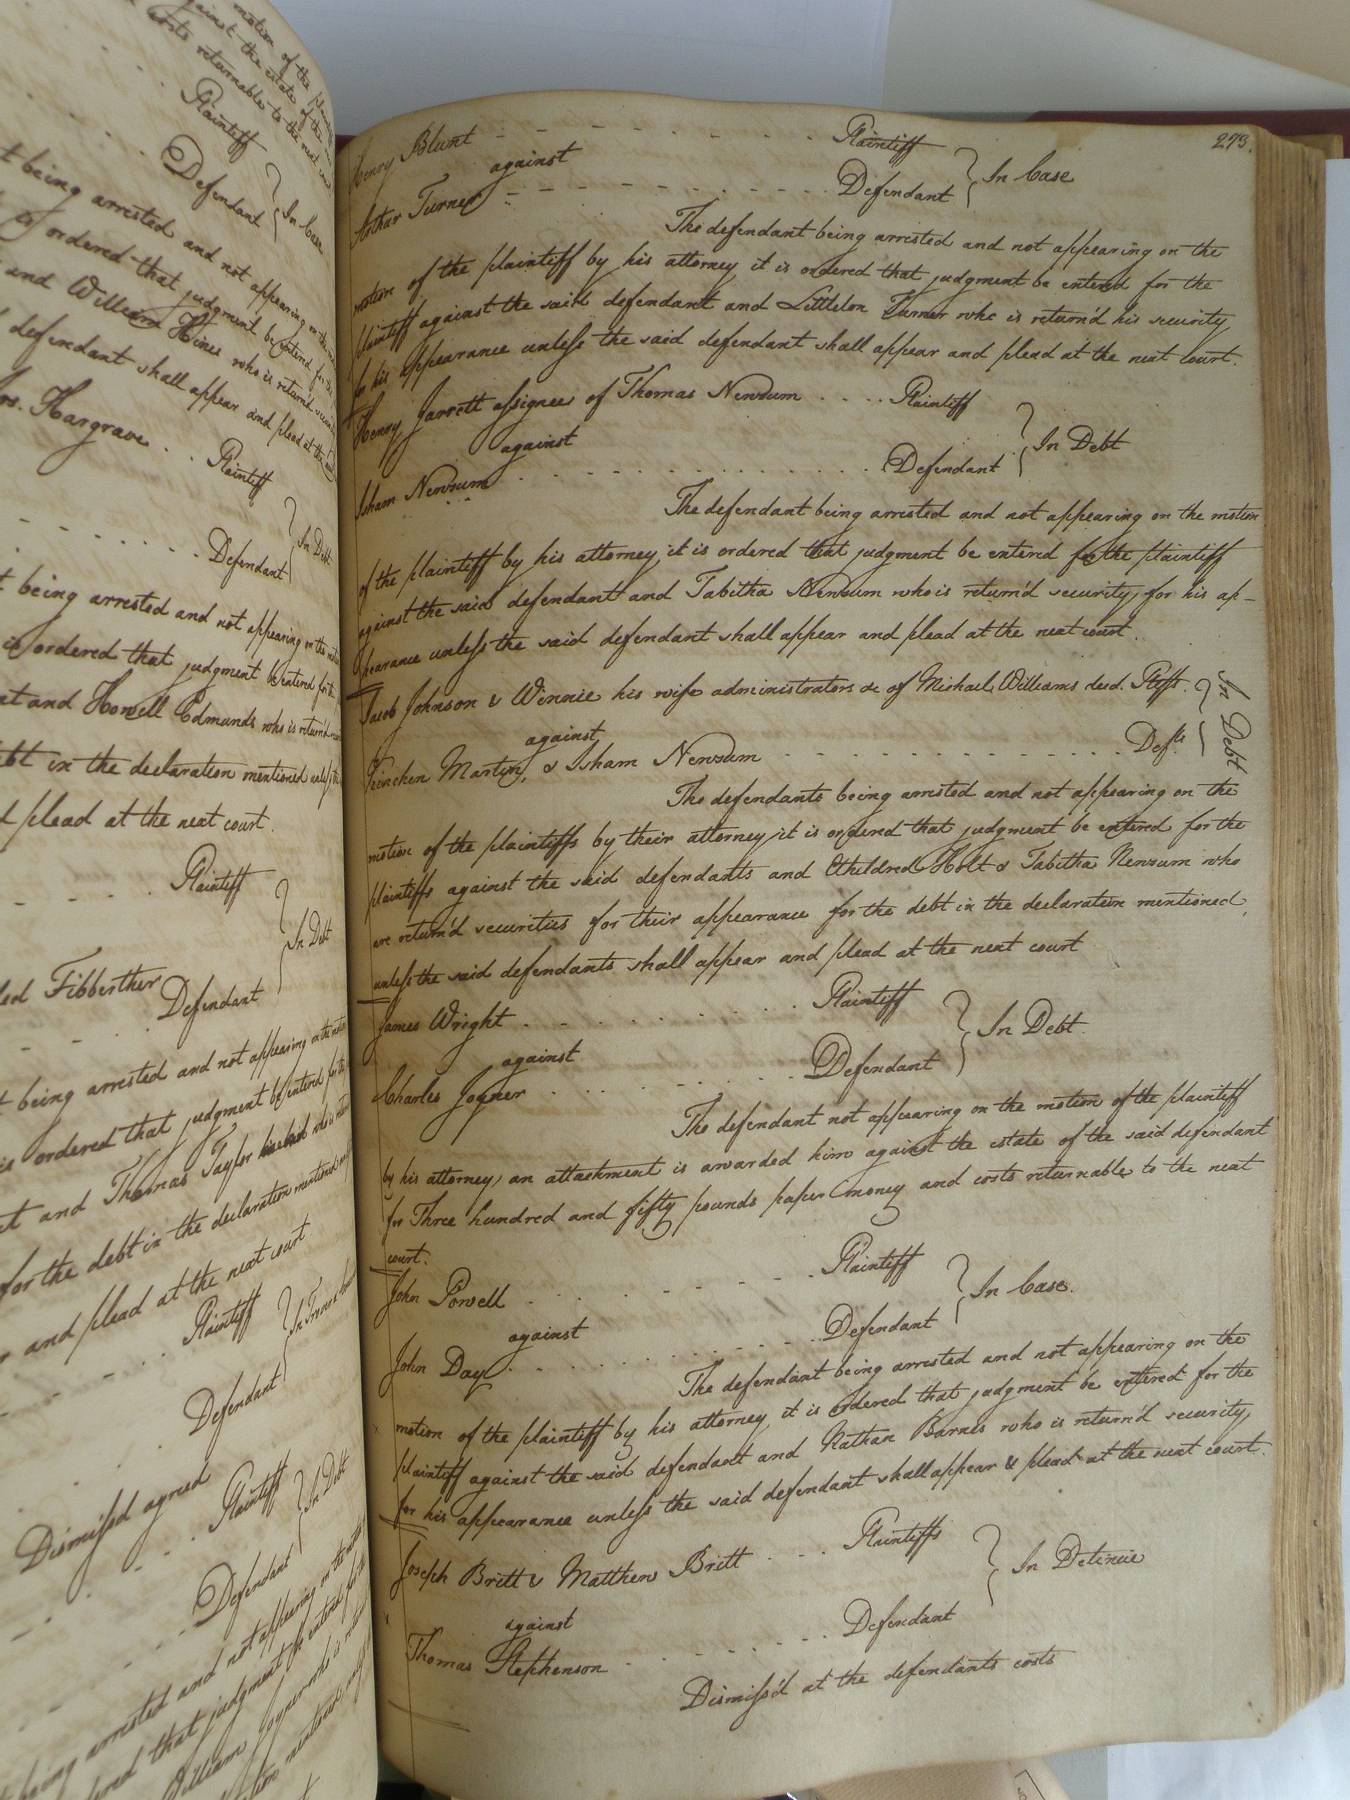 motion of the plain
against the estate of the
costs returnable to the next cou
Plaintiff
Defendant
In Case
t being arrested and not appearing on the
is ordered that judgment be entered for the
and William Hines who is return'd
defendant shall appear and plead at the
Hargrave . . Plaintiff
Defendant
In Debt
t being arrested and not appearing on the
is ordered that judgment be entered for the
nt and Howell Edmunds who is return'd
ebt in the declaration mentioned unless the
d plead at the next court.
Plaintiff
In Debt
Fibberther
Defendant
t being arrested and not appearing on the motion
is ordered that judgment be entered for the
nt and Thomas Taylor who is return
for the debt in the declaration mentioned
r and plead at the next court
Plaintiff
Defendant
Dismissd agreed
Plaintiff
In Debt
Defendant
being arrested and not appearing on the motion
ordered that judgment be entered for the
William who is return
273.
Henry Blunt - - - Plaintiff
against
In Case
Arthur Turner - - - Defendant
The defendant being arrested and not appearing on the
motion of the plaintiff by his attorney it is ordered that judgment be entered for the
plaintiff against the said defendant and Littleton Turner who is return'd his security
for his appearance unless the said defendant shall appear and plead at the next court.
Henry Jarrett assignee of Thomas Newsum . . . . Plaintiff
against
In Debt
Isham Newsum . . . Defendant
The defendant being arrested and not appearing on the motion
of the plaintiff by his attorney, it is ordered that judgment be entered for the plaintiff
against the said defendant and Tabitha Newsum who is return'd security, for his ap-
pearance unless the said defendant shall appear and plead at the next court.
Jacob Johnson & Winnie his wife administrators &c of Michael Williams decd. Pltffs.
against
In Debt
Kinchen Martin, & Isham Newsum - - - Defts
The defendants being arrested and not appearing on the
motion of the plaintiffs by their attorney, it is ordered that judgment be entered for the
plaintiffs against the said defendants and Etheldred Holt & Tabitha Newsum who
are return'd securities for their appearance for the debt in the declaration mentioned,
unless the said defendants shall appear and plead at the next court
James Wright . . . Plaintiff
against
In Debt.
Charles Joyner . . . Defendant
The defendant not appearing on the motion of the plaintiff
by his attorney, an attachment is awarded him against the estate of the said defendant
for Three hundred and fifty pounds paper money and costs returnable to the next
court.
John Powell . . . Plaintiff
against
In Case.
John Day . . . Defendant
The defendant being arrested and not appearing on the
motion of the plaintiff by his attorney, it is ordered that judgment be entered for the
plaintiff against the said defendant and Nathan Barnes who is return'd security,
for his appearance unless the said defendant shall appear & plead at the next court.
Joseph Britt & Matthew Britt . . . Plaintiffs
against
In Detinue
Thomas Stephenson . . . Defendant
Dismiss'd at the defendants costs